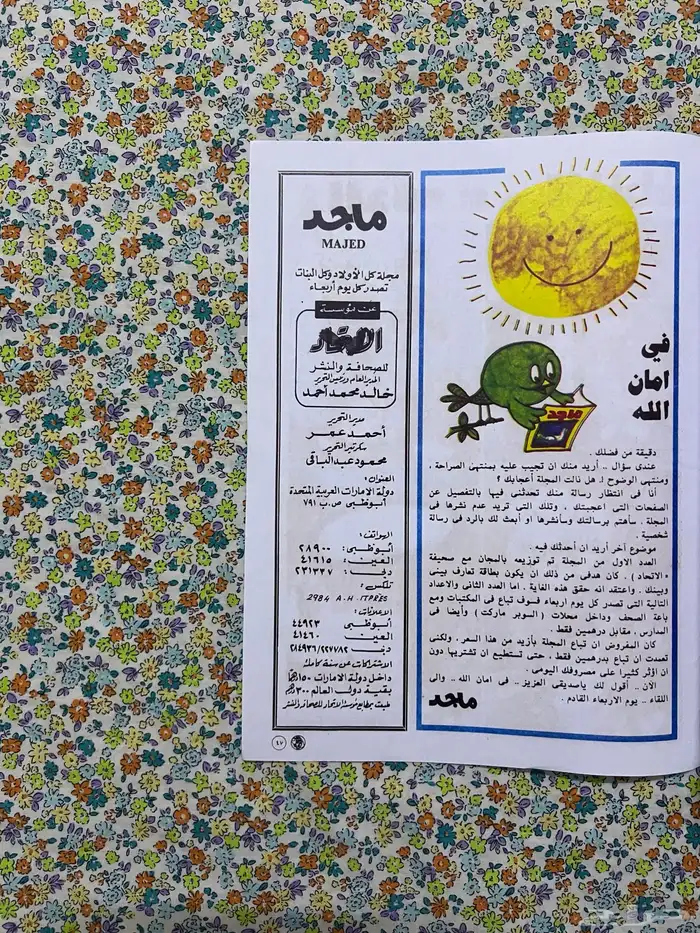 ماجد
MAJED
مجلة كل الأولاد وكل البنات
تصدر كل يوم أربعاء
عن مؤسسة
الاتحاد
للصحافة والنشر
المدير العام ورئيس التحرير
خالد محمد أحمد
مدير التحرير
أحمد عمر
سكرتير التحرير
محمود عبد الباقي
العنوان:
دولة الامارات العربية المتحدة
أبوظبى ص.ب ٧٩١
الهواتف:
أبوظبى: ٢٨٩٠٠
العين: ٤١٦١٥
دبى: ٢٣١٣٣٧
تلكس:
2984 A.H. ITPRES
الاعلانات:
أبوظبى ٤٤٩٢٣
العين ٤١٤٦٠
دبى ٢١٤٩٣٦/٢٢٧٧٨٢
الاشتراكات عن سنة كاملة
داخل دولة الامارات ١٥٠ درهم
بقية دول العالم ٣٠٠ درهم
طبعت بمطابع مؤسسة الاتحاد للصحافة والنشر
٤٧
فى
امان
الله
ماجد
دقيقة من فضلك .
عندى سؤال .. أريد منك ان تجيب عليه بمنتهى الصراحة ،
ومنتهى الوضوح : هل نالت المجلة أعجابك ؟
أنا فى انتظار رسالة منك تحدثنى فيها بالتفصيل عن
الصفحات التى اعجبتك ، وتلك التى تريد عدم نشرها فى
المجلة . سأهتم برسالتك وسأنشرها أو أبعث لك بالرد فى رسالة
شخصية .
موضوع آخر أريد ان أحدثك فيه .
العدد الاول من المجلة تم توزيعه بالمجان مع صحيفة
« الاتحاد » . كان هدفى من ذلك ان يكون بطاقة تعارف بينى
وبينك . واعتقد انه حقق هذه الغاية . اما العدد الثانى والاعداد
التالية التى تصدر كل يوم اربعاء فسوف تباع فى المكتبات ومع
باعة الصحف وداخل محلات ( السوبر ماركت ) وأيضا فى
المدارس . مقابل درهمين فقط .
كان المفروض ان تباع المجلة بأزيد من هذا السعر . ولكنى
تعمدت ان تباع بدرهمين فقط ، حتى تستطيع ان تشتريها دون
ان اؤثر كثيرا على مصروفك اليومى .
الآن .. أقول لك ياصديقى العزيز .. فى امان الله .. والى
اللقاء .. يوم الاربعاء القادم .
ماجد